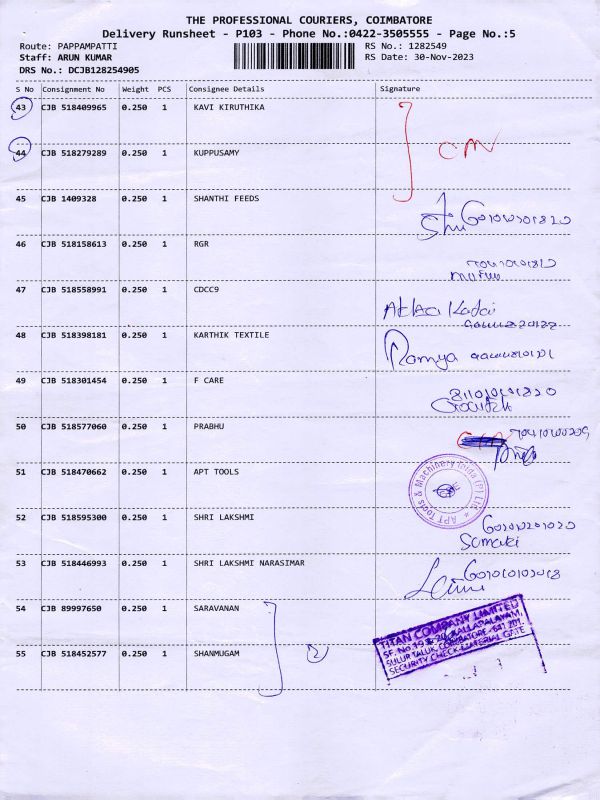 THE PROFESSIONAL COURIERS, COIMBATORE
Delivery Runsheet - P103 - Phone No.:0422-3505555 - Page No.:5
Route: PAPPAMPATTI
RS No.: 1282549
Staff: ARUN KUMAR
RS Date: 30-Nov-2023
DRS No.: DCJB128254905
S No Consignment No Weight PCS Consignee Details Signature
43 CJB 518409965 0.250 1 KAVI KIRUTHIKA
44 CJB 518279289 0.250 1 KUPPUSAMY
45 CJB 1409328 0.250 1 SHANTHI FEEDS
46 CJB 518158613 0.250 1 RGR
47 CJB 518558991 0.250 1 CDCC9
48 CJB 518398181 0.250 1 KARTHIK TEXTILE
Ramya
49 CJB 518301454 0.250 1 F CARE
50 CJB 518577060 0.250 1 PRABHU
51 CJB 518470662 0.250 1 APT TOOLS
APT Tools & Machinery India (P) Ltd.
52 CJB 518595300 0.250 1 SHRI LAKSHMI
53 CJB 518446993 0.250 1 SHRI LAKSHMI NARASIMAR
54 CJB 89997650 0.250 1 SARAVANAN
TITAN COMPANY LIMITED
SULUR TALUK, COIMBATORE - 641 201.
SECURITY CHECK-MATERIAL GATE
55 CJB 518452577 0.250 1 SHANMUGAM
2